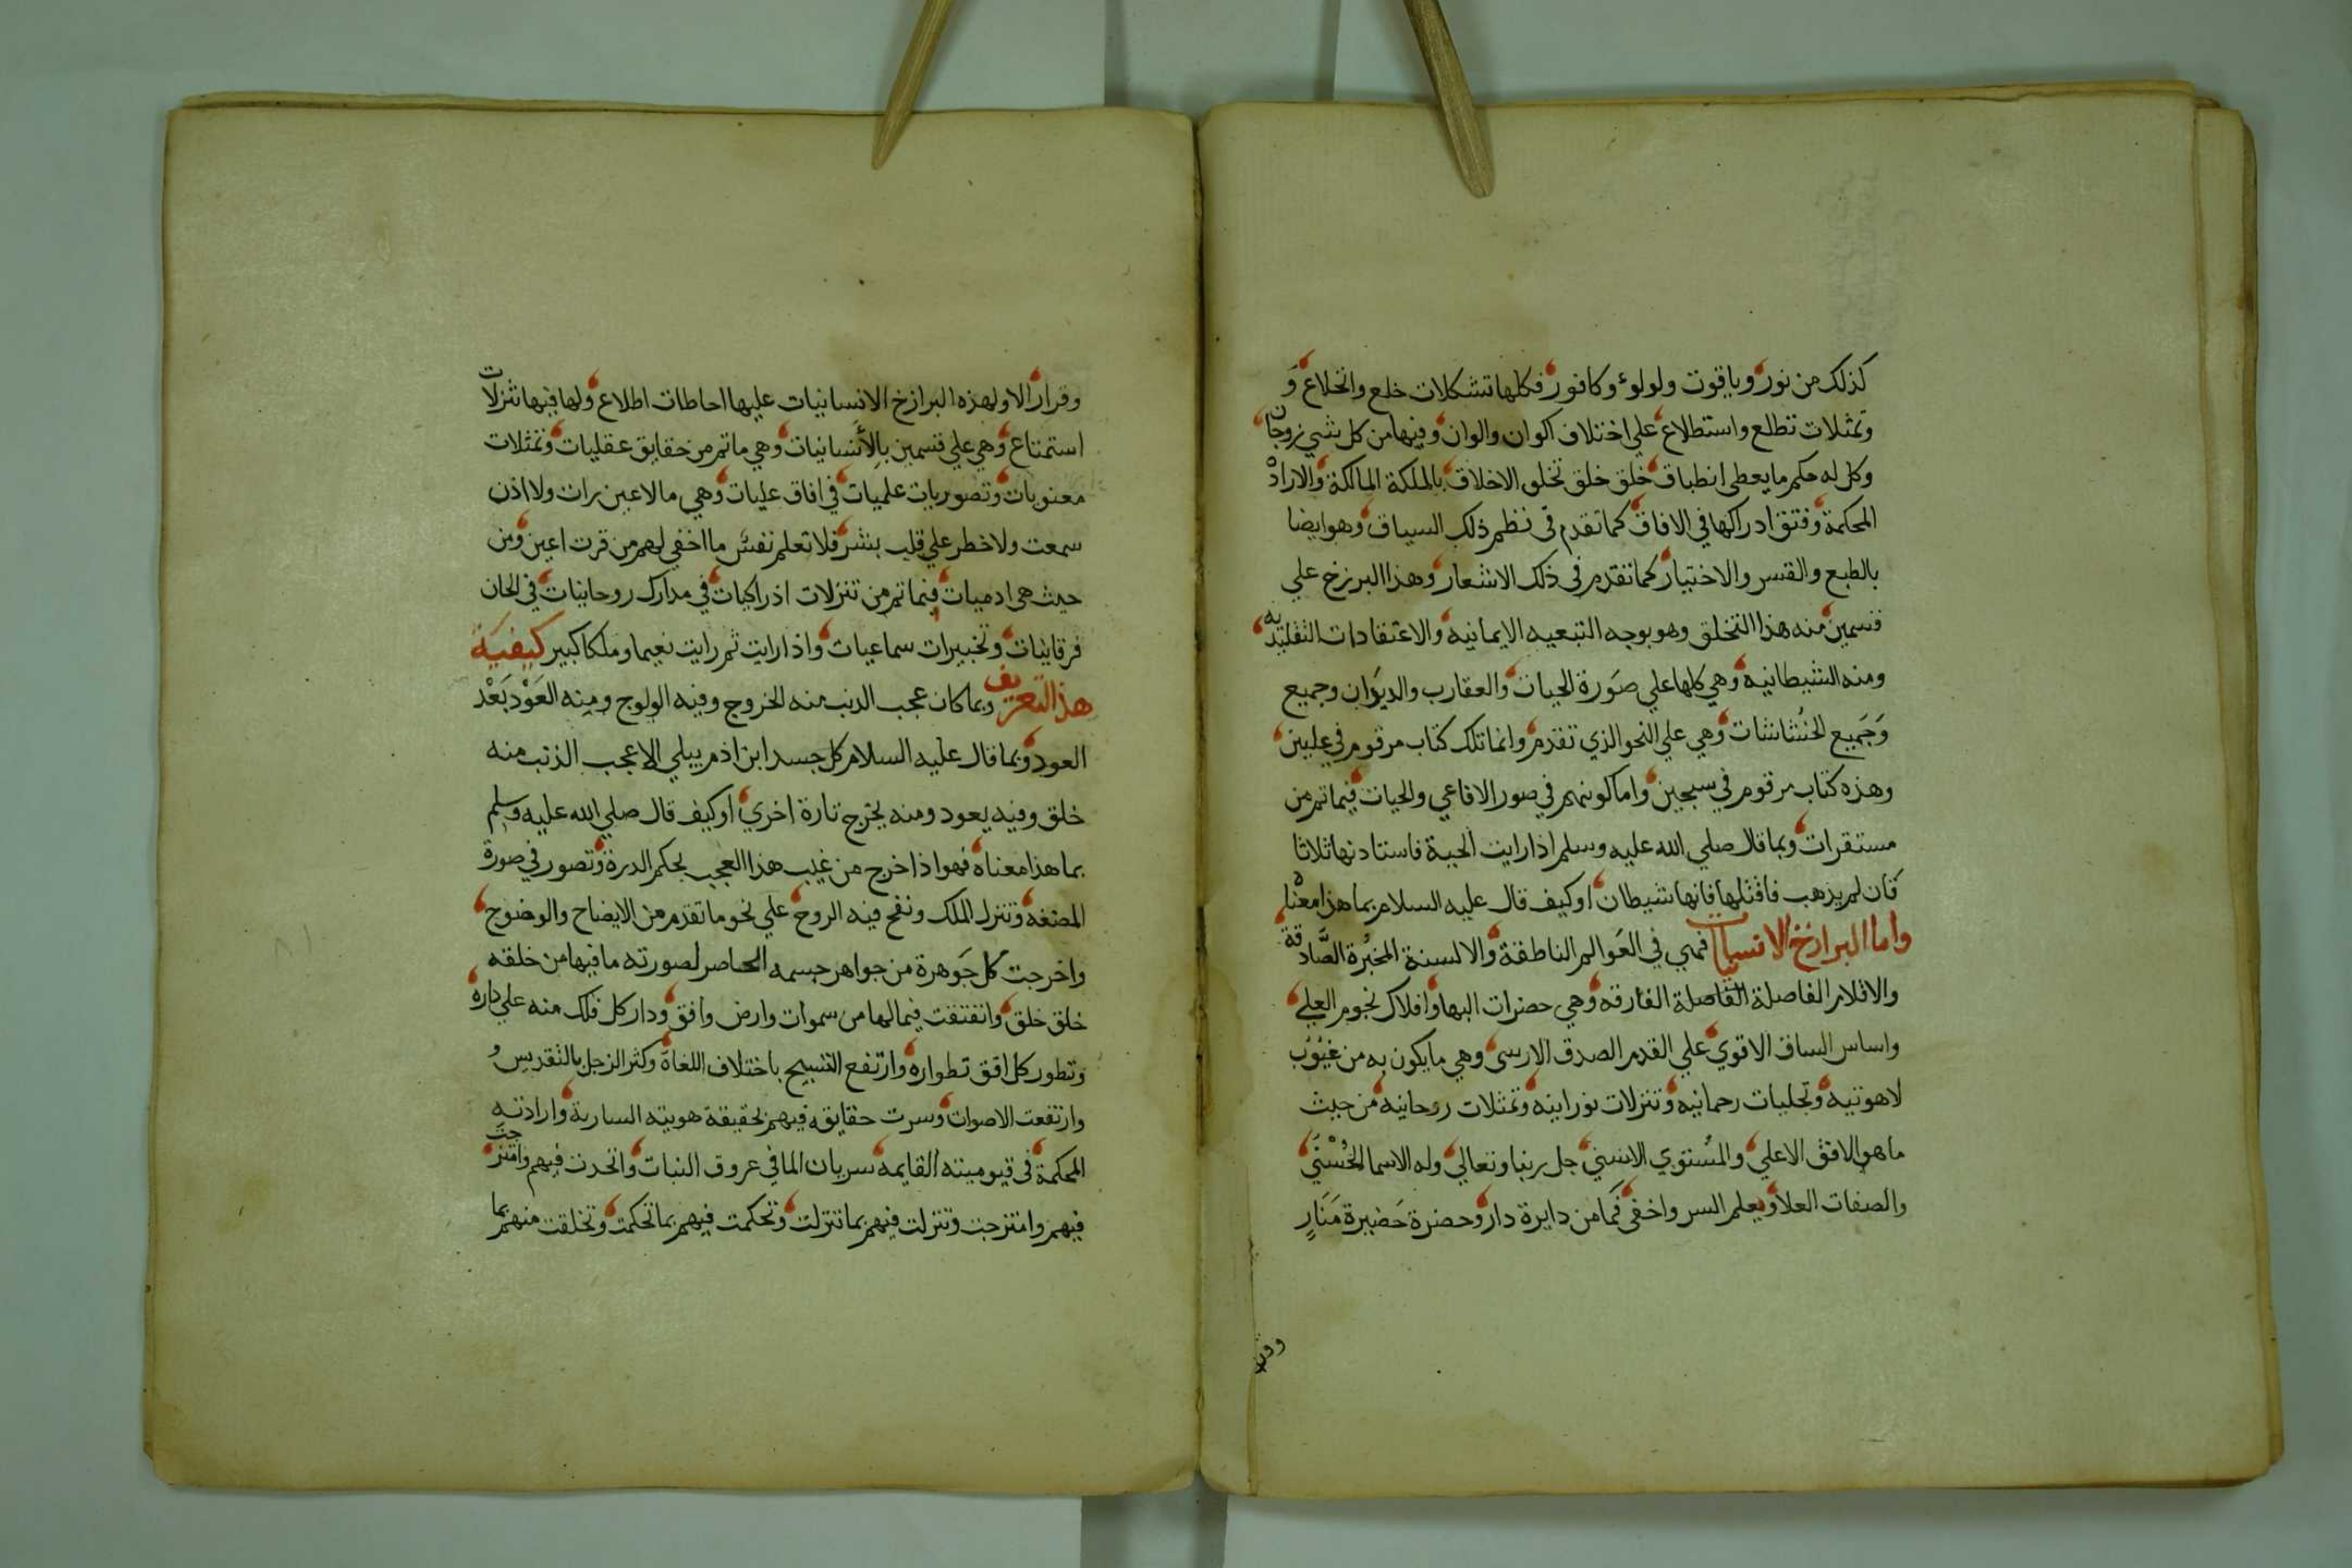 كذلك من نور وياقوت ولولوء وكافور فكلها تشكلات خلع وانخلاع و
وتمثلات تطلع واستطلاع علي اختلاف اكوان والوان وفيها من كل شي زوجان
وكل له حكم ما يعطي انطباق خلق خلق تخلق الاخلاق بالملكة المالكة والاراد
المحكمة وفتق ادراكها في الافاق كما تقدم في نظم ذلك السياق وهو ايضا
بالطبع والقسر والاختيار كما تقدم في ذلك الاشعار وهذا البرزخ علي
قسمين منه هذا التخلق وهو بوجه التبعيه الايمانيه والاعتقادات التقليديه
ومنه الشيطانيه وهي كلها علي صورة الحيات والعقارب والديوان وجميع
وجميع الخشاشات وهي علي النحو الذي تقدم وانما تلك كتاب مرقوم في عليين
وهذه كتاب مرقوم في سجين واما كونهم في صور الافاعي والحيات فيما تم من
مستقرات وبما قال صلي الله عليه وسلم اذا رايت الحية فاستاذنها ثلاثا
فان لم يذهب فاقتلها فانها شيطان او كيف قال عليه السلام بما هذا معناه
واما البرازخ الانسيات فهي في العوالم الناطقة والالسنة المخبرة الصادقة
والاقلام الفاصلة الفاصلة الفارقه وهي حضرات البها وافلاك نجوم العلي
واساس الساق الاقوي علي القدم الصدق الارسي وهي ما يكون به من غيوب
لاهوتيه وتجليات رحمانيه وتنزلات نورانيه وتمثلات روحانيه من حيث
ما هو الافق الاعلي والمستوي الاسني جل ربنا وتعالي وله الاسما الحسني
والصفات العلا ويعلم السر واخفي فما من دايرة دار وحضرة حضيرة منار
وقرار الا ولهذه البرازخ الانسانيات عليها احاطات اطلاع ولها فيها تنزلات
استمتاع وهي علي قسمين بالانسانيات وهي ما تم من حقايق عقليات وتمثلات
معنويات وتصوريات علميات في افاق عليات وهي ما لا عين رات ولا اذن
سمعت ولا خطر علي قلب بشر فلا تعلم نفس ما اخفي لهم من قرت اعين ومن
حيث هي ادميات فيما تم من تنزلات ادراكيات في مدارك روحانيات في الحان
فرقانيات وتخبيرات سماعيات واذا رايت ثم رايت نعيما وملكا كبير كيفية
هذا التعريف وبما كان عجب الذنب منه الخروج وفيه الولوج ومنه العود بعد
العود وبما قال عليه السلام كل جسد ابن ادم يبلي الا عجب الذنب منه
خلق وفيه يعود ومنه يخرج تارة اخري او كيف قال صلي الله عليه وسلم
بما هذا معناه فهو اذا خرج من غيب هذا العجب بحكم الدرة وتصور في صورة
المضغه وتنزل الملك ونفخ فيه الروح علي نحو ما تقدم من الايضاح والوضوح
واخرجت كل جوهرة من جواهر جسمه الحاصر لصورته ما فيها من خلقه
خلق خلق وانفتقت فيما لها من سموات وارض وافق ودار كل فلك منه علي داره
وتطور كل افق تطواره وارتفع التسبيح باختلاف اللغاة وكثر الزجل بالتقديس و
وارتفعت الاصوات وسرت حقايقه فيهم بحقيقة هويته السارية وارادته
المحكمة في قيوميته القايمه سريان الما في عروق النبات واتحدت فيهم وامتزجت
فيهم وامتزجت وتنزلت فيهم بما تنزلت وتحكمت فيهم بما تحكمت وتخلقت منهم بما